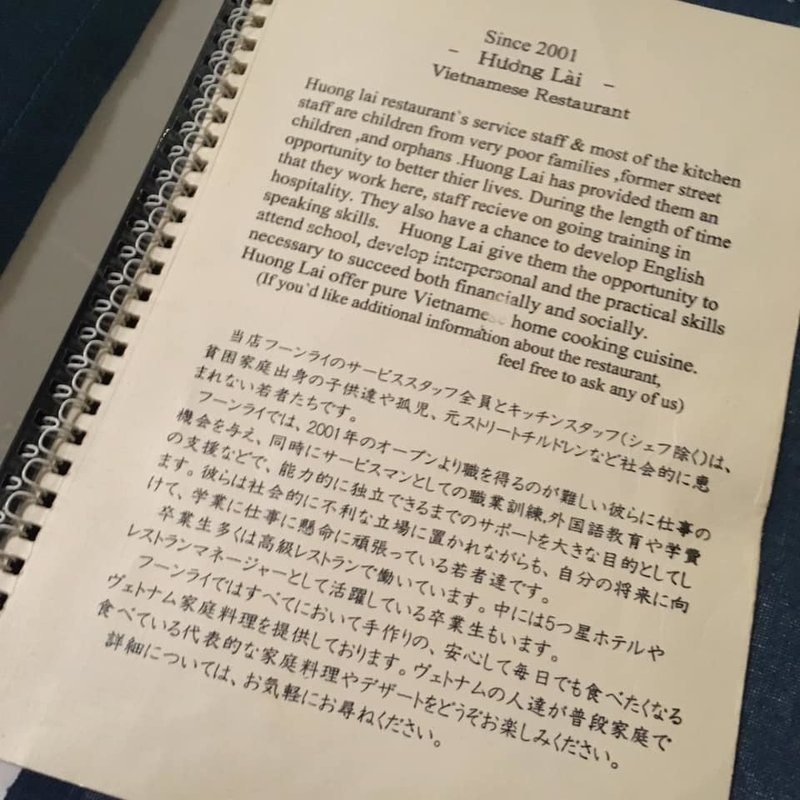 Since 2001
- Hương Lài -
Vietnamese Restaurant
Huong lai restaurant`s service staff & most of the kitchen
staff are children from very poor families ,former street
children ,and orphans .Huong Lai has provided them an
opportunity to better thier lives. During the length of time
that they work here, staff recieve on going training in
hospitality. They also have a chance to develop English
speaking skills. Huong Lai give them the opportunity to
attend school, develop interpersonal and the practical skills
necessary to succeed both financially and socially.
Huong Lai offer pure Vietnamese home cooking cuisine.
(If you`d like additional information about the restaurant,
feel free to ask any of us)
当店フーンライのサービススタッフ全員とキッチンスタッフ(シェフ除く)は、
貧困家庭出身の子供達や孤児、元ストリートチルドレンなど社会的に恵
まれない若者たちです。
フーンライでは、2001年のオープンより職を得るのが難しい彼らに仕事の
機会を与え、同時にサービスマンとしての職業訓練,外国語教育や学費
の支援などで、能力的に独立できるまでのサポートを大きな目的としてし
ます。彼らは社会的に不利な立場に置かれながらも、自分の将来に向
けて、学業に仕事に懸命に頑張っている若者達です。
卒業生多くは高級レストランで働いています。中には5つ星ホテルや
レストランマネージャーとして活躍している卒業生もいます。
フーンライではすべてにおいて手作りの、安心して毎日でも食べたくなる
ヴェトナム家庭料理を提供しております。ヴェトナムの人達が普段家庭で
食べている代表的な家庭料理やデザートをどうぞお楽しみください。
詳細については、お気軽にお尋ねください。